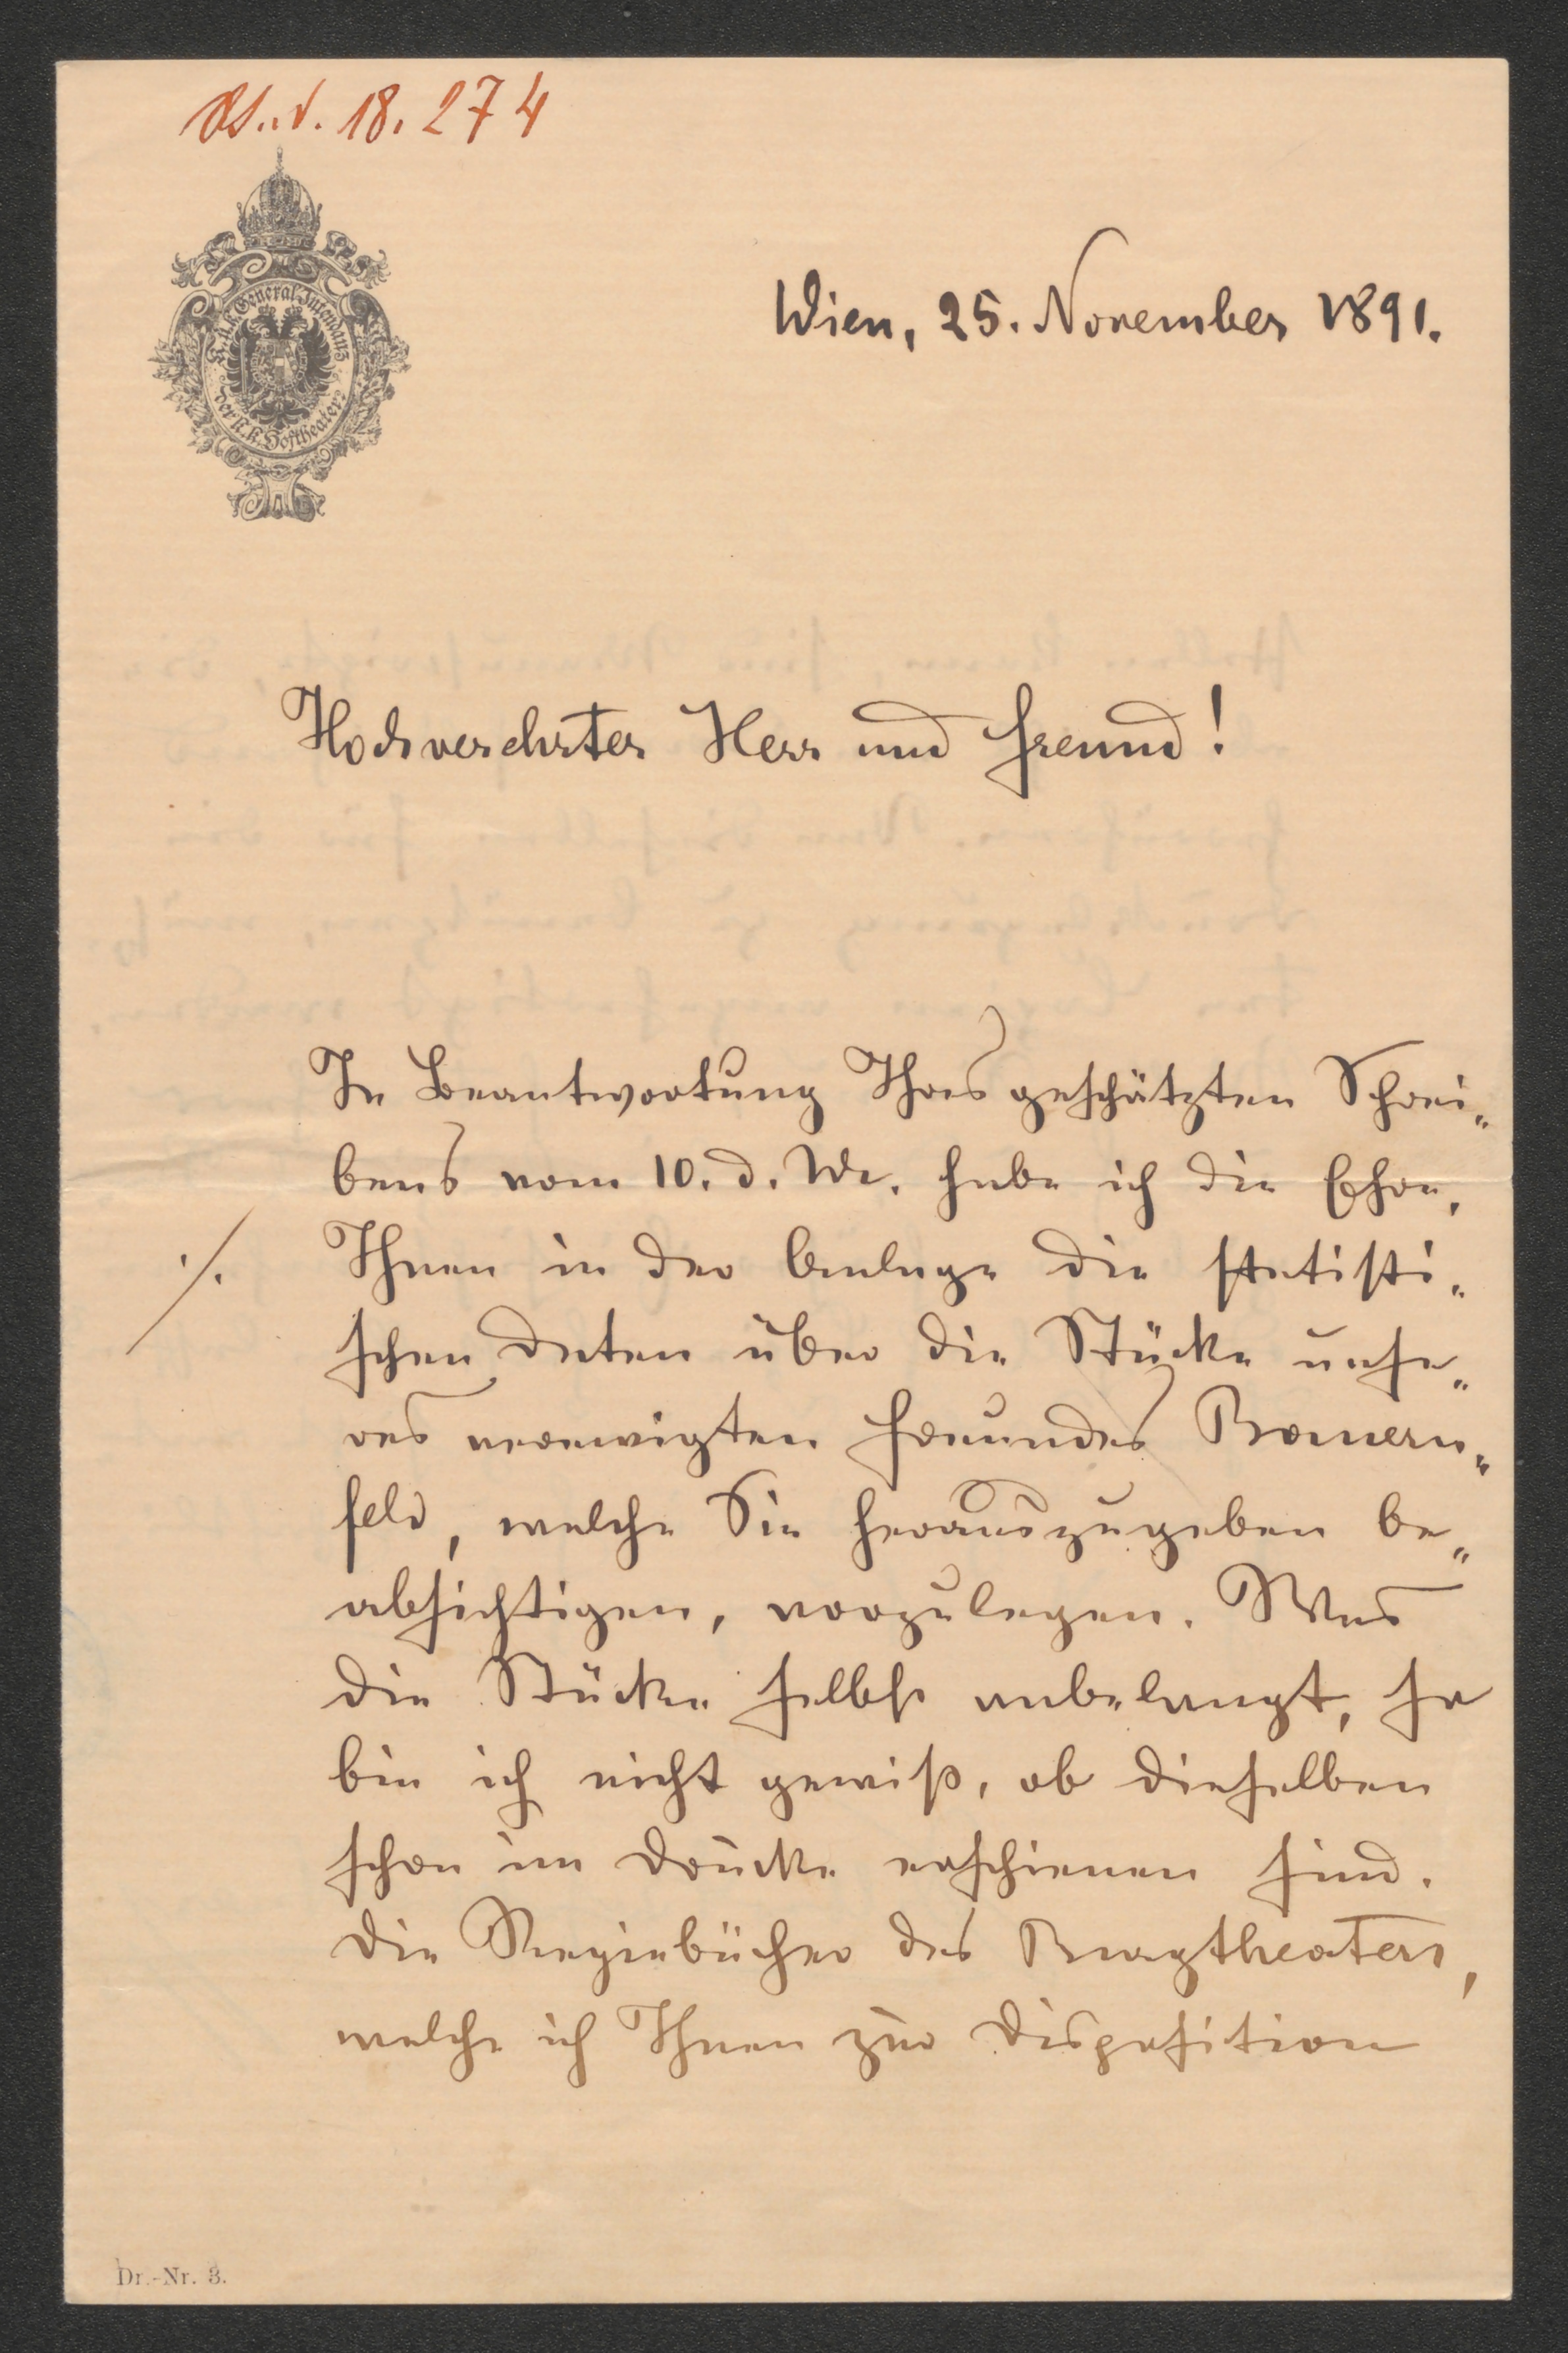 18.274
K. u. K. General-Intendanz
der K. K. Hoftheater
Wien, 25. November 1891.
Hochverehrter Herr und Freund!
In Beantwortung Ihres geschätzten Schrei„
bens vom 10. d. M. habe ich die Ehre,
·/. Ihnen in der Beilage die statisti„
schen Daten über die Stücke unse„
res verewigten Freundes Bauern„
feld, welche Sie herauszugeben be„
absichtigen, vorzulegen. Was
die Stücke selbst anbelangt, so
bin ich nicht gewiß, ob dieselben
schon im Drucke erschienen sind.
Die Regiebücher des Burgtheaters,
welche ich Ihnen zur Disposition
Dr.-Nr. 3.